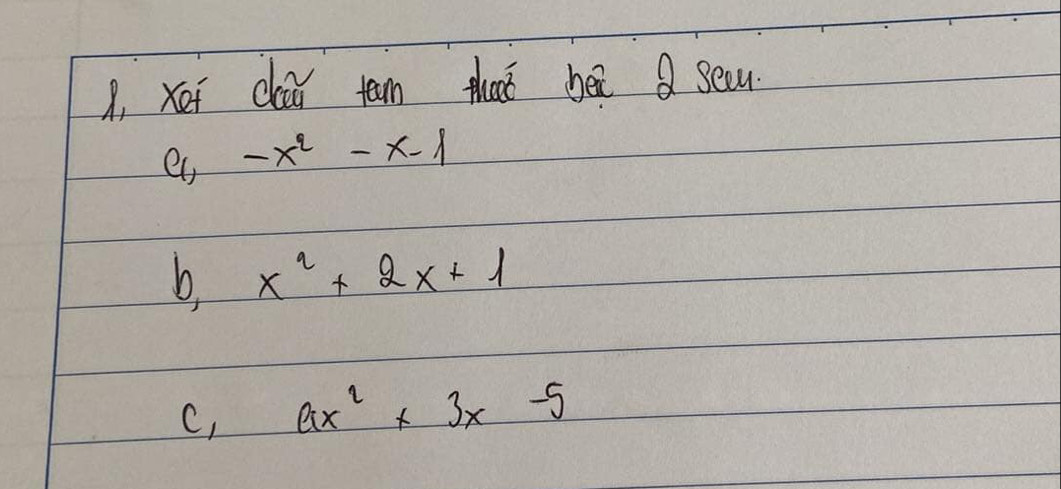 1, Xét dấu tam thức bậc 2 sau.
a, -x² - x - 1
b, x² + 2x + 1
c, ax² + 3x -5